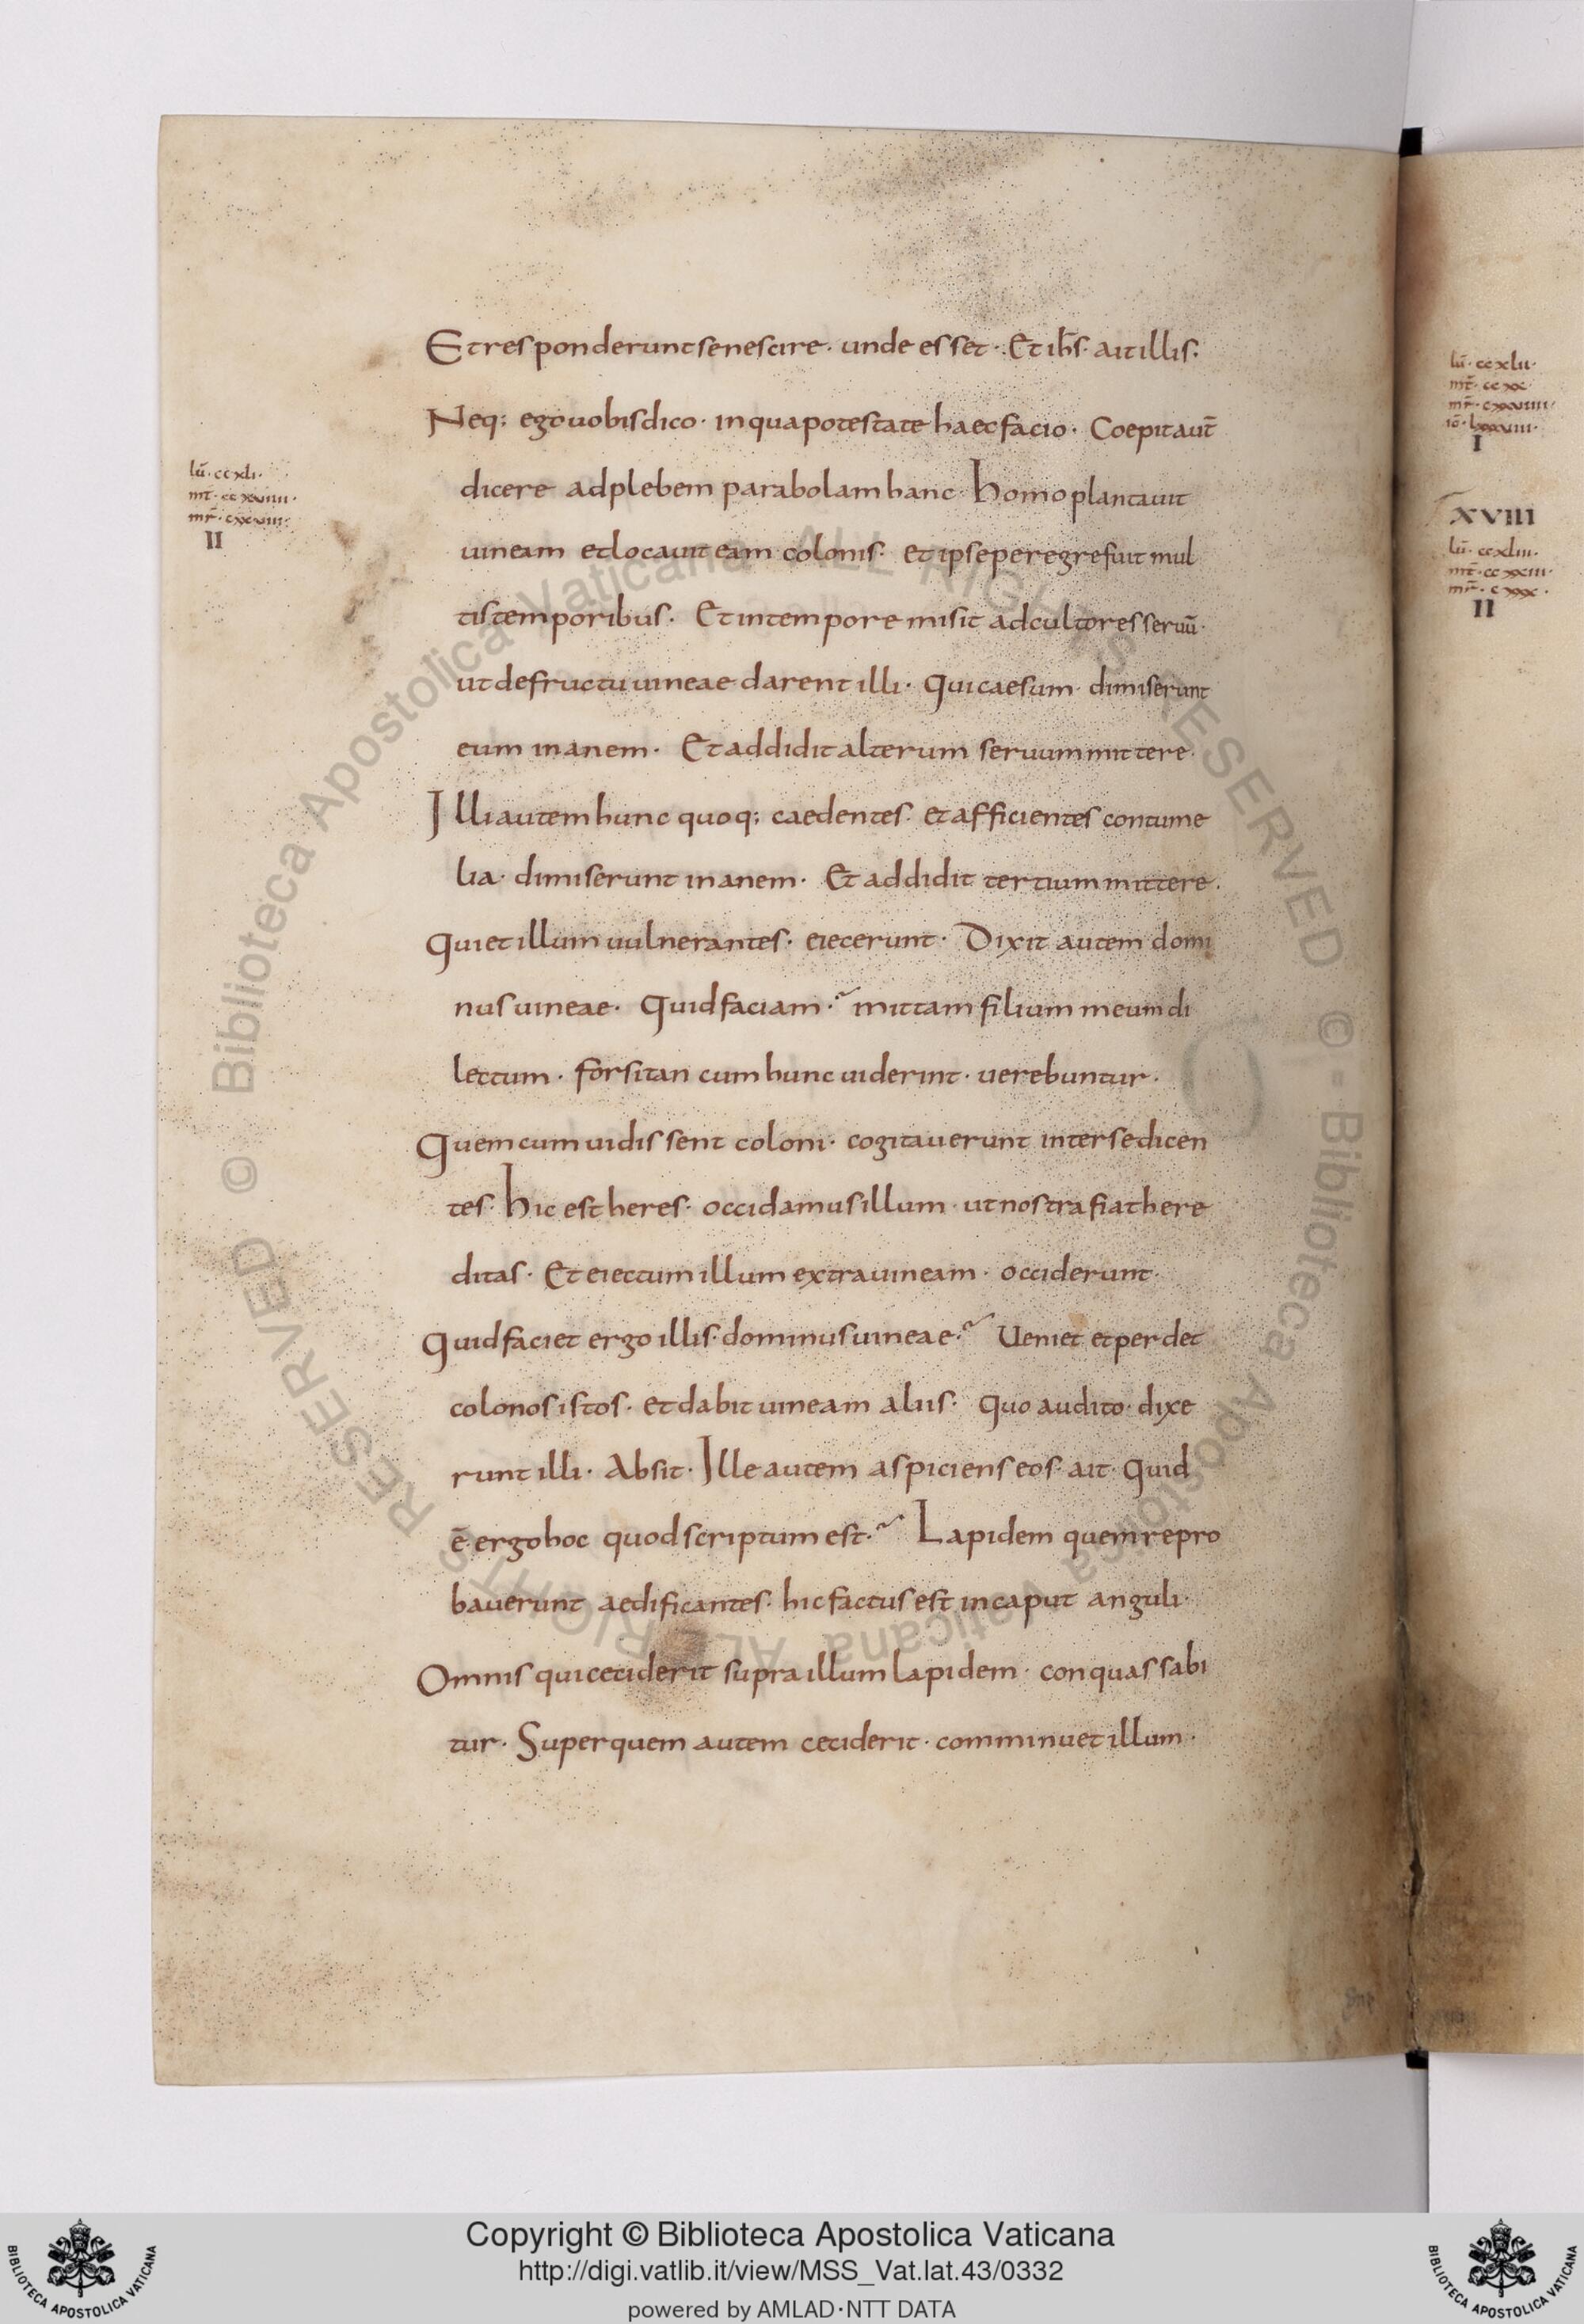 Et responderunt se nescire · unde esset · Et ih̅s · ait illis ·
lū · ccxli ·
mt̄ · ccxviiii ·
mr̄ · cxxviiii ·
II
Neq; ego uobis dico · in qua potestate haec facio · Coepit aut̄
dicere ad plebem parabolam hanc · Homo plantauit
uineam et locauit eam colonis · et ipse peregre fuit mul
tis temporibus · Et in tempore misit ad cultores seruū ·
ut de fructu uineae darent illi · Qui caesum · dimiserunt
eum inanem · Et addidit alterum seruum mittere ·
Illi autem hunc quoq; caedentes · et afficientes contume
lia · dimiserunt inanem · Et addidit tertium mittere ·
Qui et illum uulnerantes · eiecerunt · Dixit autem domi
nus uineae · Quid faciam ·~ mittam filium meum di
lectum · forsitan cum hunc uiderint · uerebuntur ·
Quem cum uidissent coloni · cogitauerunt inter se dicen
tes · Hic est heres · occidamus illum · ut nostra fiat here
ditas · Et eiectum illum extra uineam · occiderunt ·
Quid faciet ergo illis · dominus uineae ·~ Ueniet et perdet
colonos istos · et dabit uineam aliis · Quo audito · dixe
runt illi · Absit · Ille autem aspiciens eos · ait · Quid
ē ergo hoc quod scriptum est ·~ Lapidem quem repro
bauerunt aedificantes · hic factus est in caput anguli ·
Omnis qui ceciderit supra illum lapidem · conquassabi
tur · Super quem autem ceciderit · comminuet illum ·
lū · ccxlii ·
mt̄ · ccxx ·
I
XVIII
lū · ccxliii ·
mt̄ · ccxxiii ·
mr̄ · cxxx ·
II
© Biblioteca Apostolica Vaticana ALL RIGHTS RESERVED © - Biblioteca Apostolica Vaticana ALL RIGHTS RESERVED
Copyright © Biblioteca Apostolica Vaticana
http://digi.vatlib.it/view/MSS_Vat.lat.43/0332
powered by AMLAD·NTT DATA
BIBLIOTECA APOSTOLICA VATICANA
BIBLIOTECA APOSTOLICA VATICANA